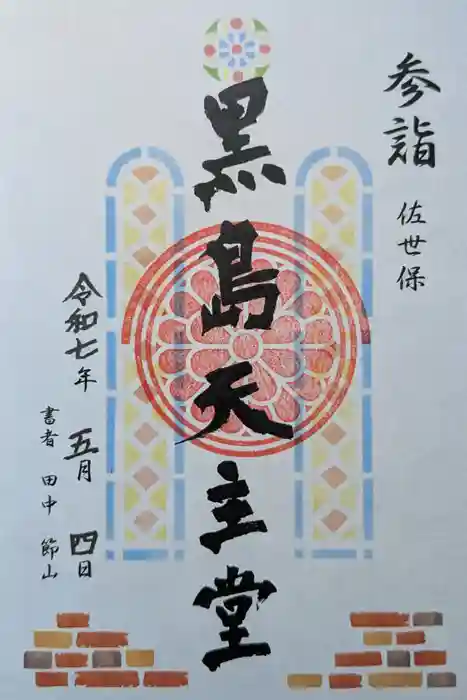 参詣 佐世保
黒島天主堂
令和七年 五月 四日
書者 田中 節山